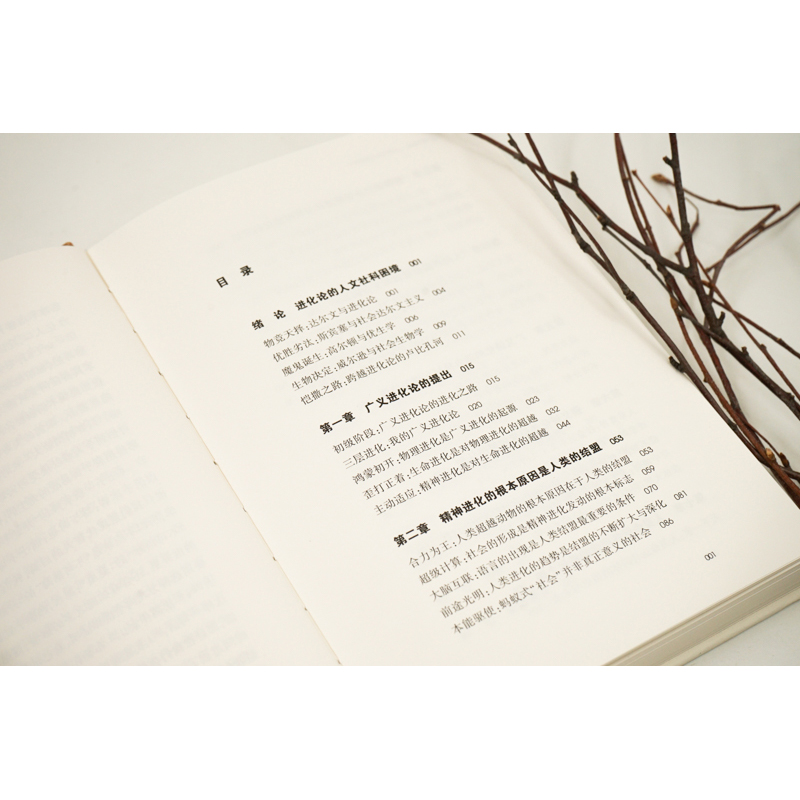 目 录
绪 论 进化论的人文社科困境 001
物竞天择：达尔文与进化论 001
优胜劣汰：斯宾塞与社会达尔文主义 004
魔鬼诞生：高尔顿与优生学 006
生物决定：威尔逊与社会生物学 009
恺撒之路：跨越进化论的卢比孔河 011
第一章 广义进化论的提出 015
初级阶段：广义进化论的进化之路 015
三层进化：我的广义进化论 020
鸿蒙初开：物理进化是广义进化的起源 023
歪打正着：生命进化是对物理进化的超越 032
主动适应：精神进化是对生命进化的超越 044
第二章 精神进化的根本原因是人类的结盟 053
合力为王：人类超越动物的根本原因在于人类的结盟 053
超级计算：社会的形成是精神进化发动的根本标志 059
大脑互联：语言的出现是人类结盟最重要的条件 070
前途光明：人类进化的趋势是结盟的不断扩大与深化 081
本能驱使：蚂蚁式“社会”并非真正意义的社会 086
001